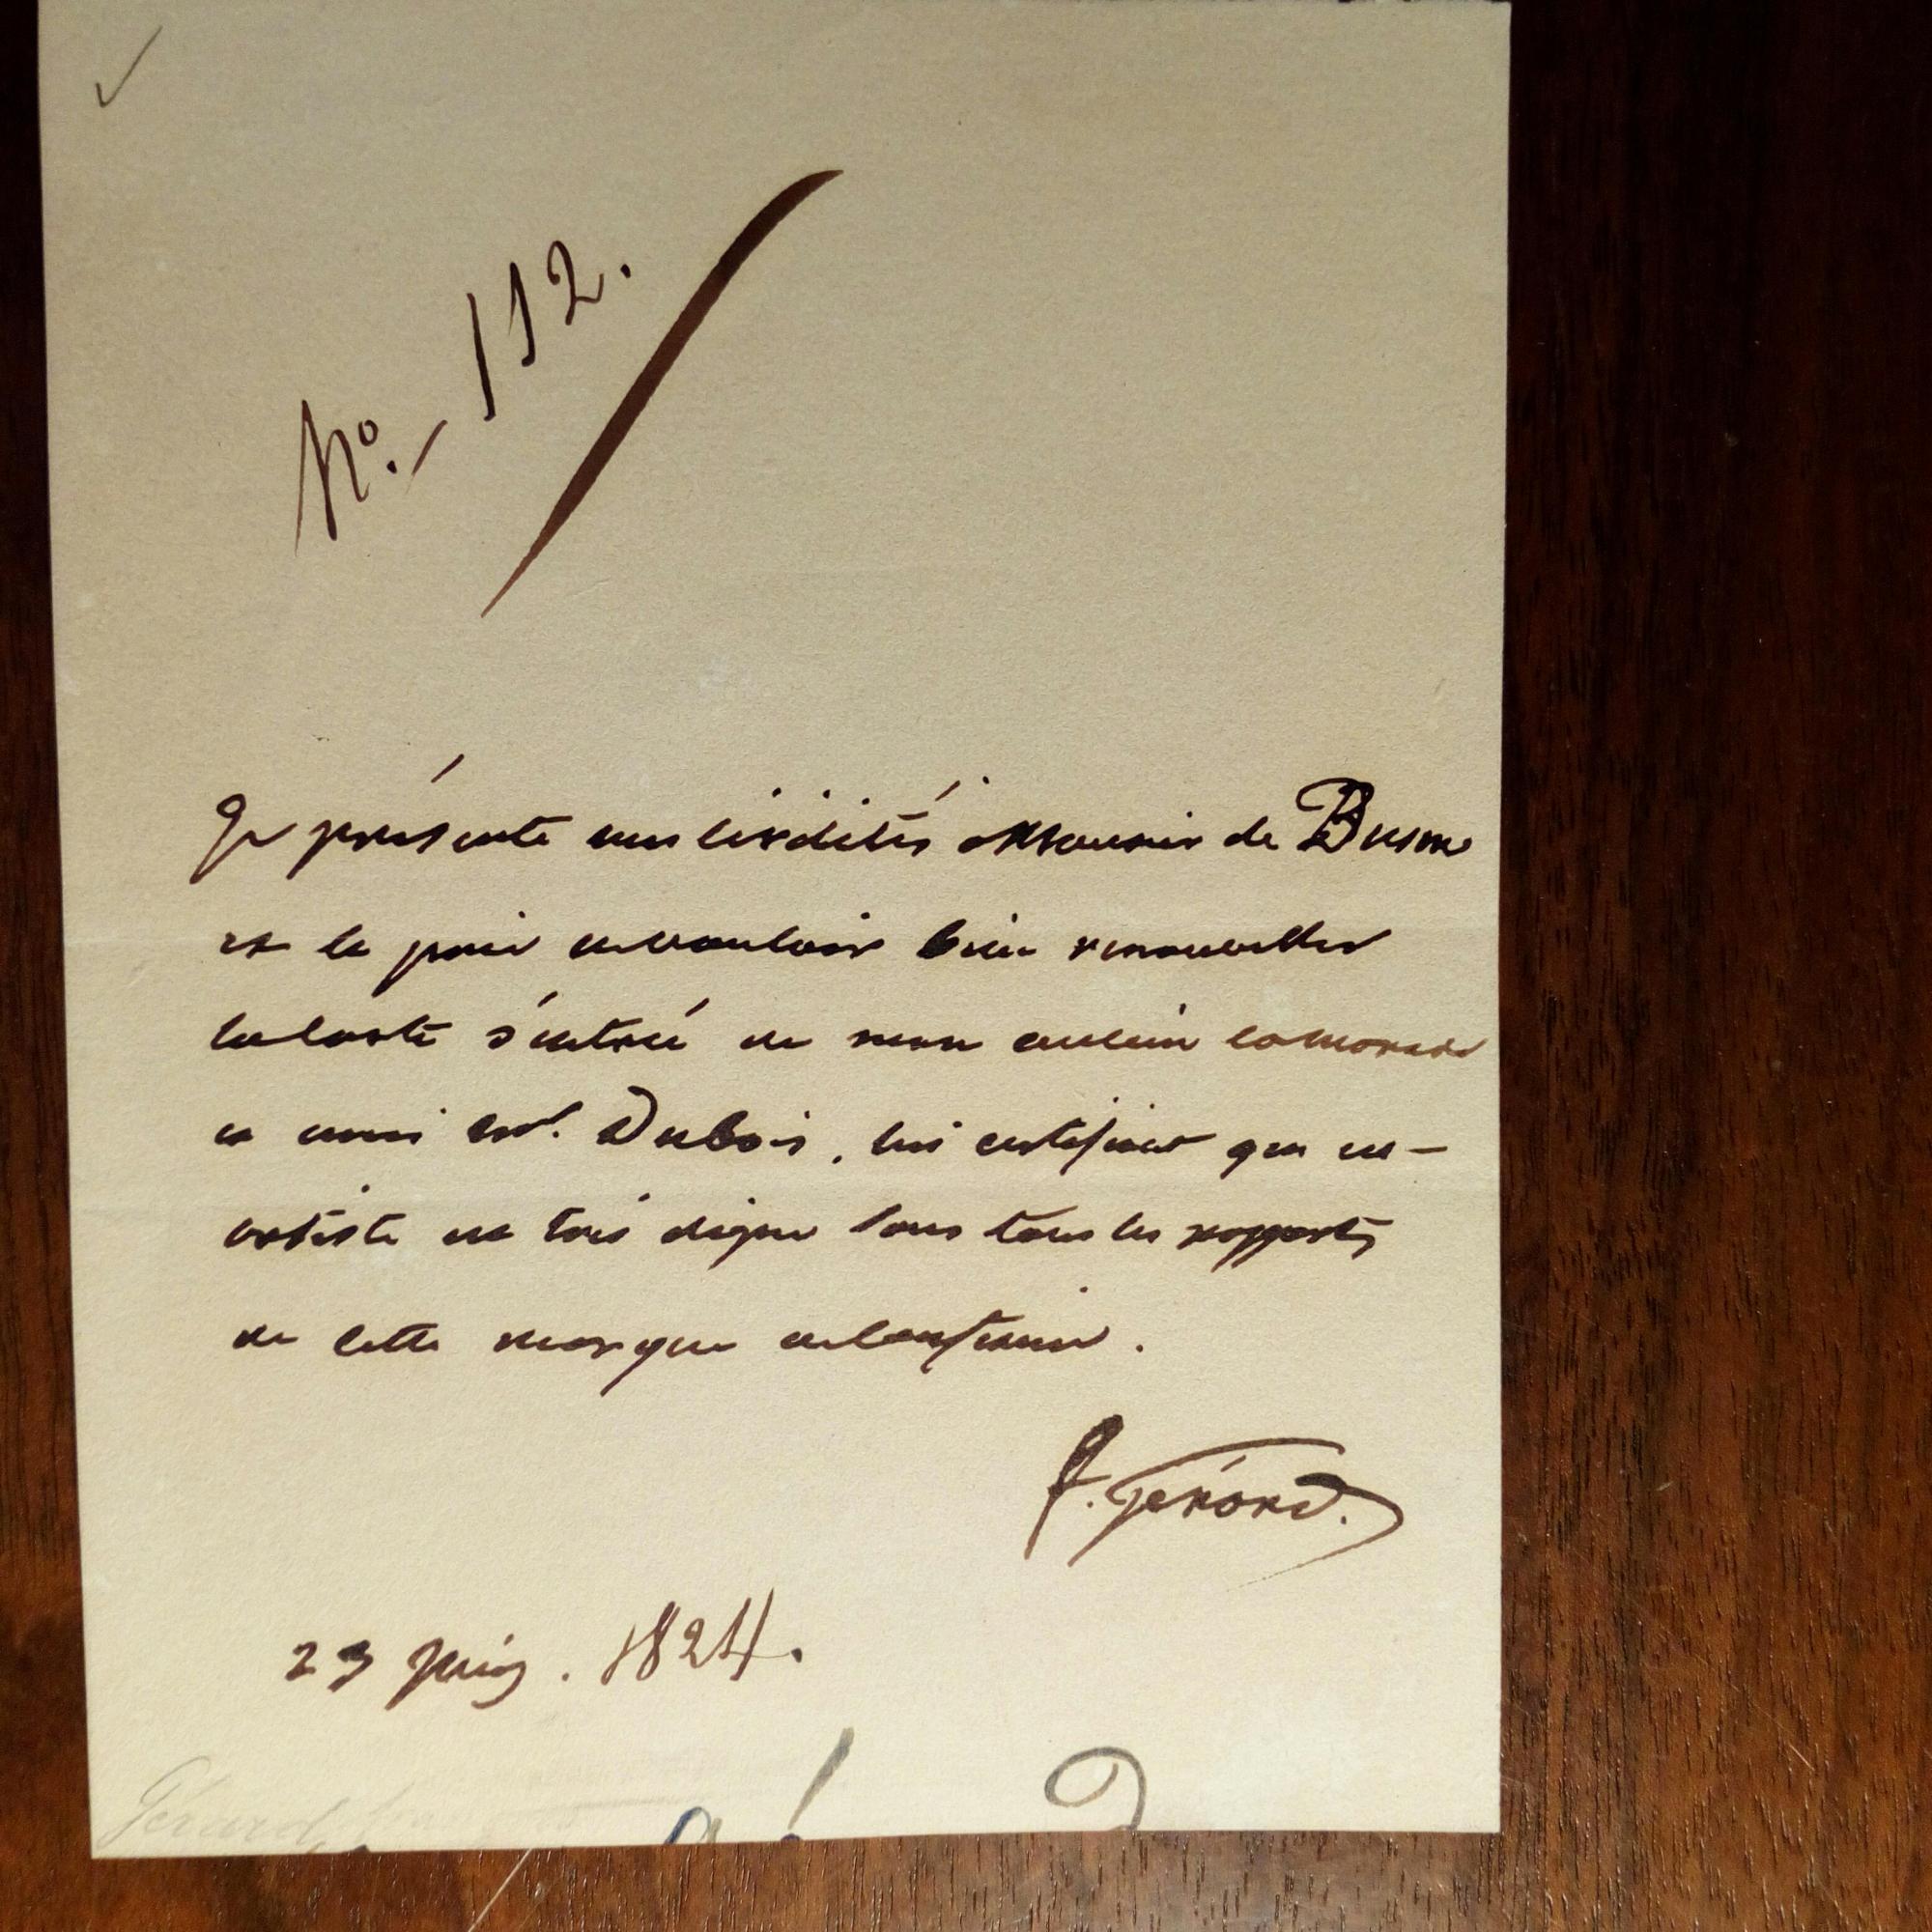 No. 112.
Je présente mes civilités à Monsieur de
et le prie de vouloir bien renouveller
la carte d'entrée de mon ancien camarade
et ami Mr. Dubois, lui certifiant que cet
artiste est très digne sous tous les rapports
de cette marque de confiance.
F. Gérard.
23 juin. 1824.
Gérard